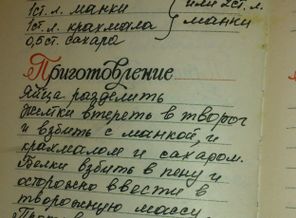 1ст.л. манки или 2ст.л.
1ст.л. крахмала манки
0,5ст. сахара
Приготовление
Яйца разделить
Желтки втереть в творог
и взбить с манкой, и
крахмалом и сахаром.
Белки взбить в пену и
осторожно ввести в
творожную массу